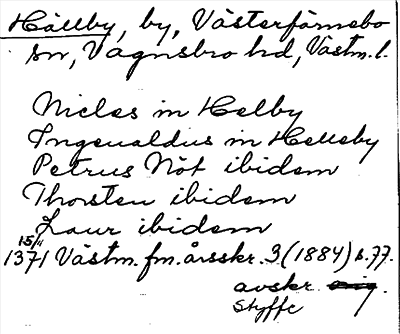 Hällby, by, Västerfärnebo
sn, Vagnsbro hd, Västm. l.
Niclas in Helby
Ingeualdus in Helleby
Petrus Nöt ibidem
Thorsten ibidem
Laur ibidem
15/11
1371 Västm. fm. årsskr. 3 (1884) s. 77.
avskr.
Styffe